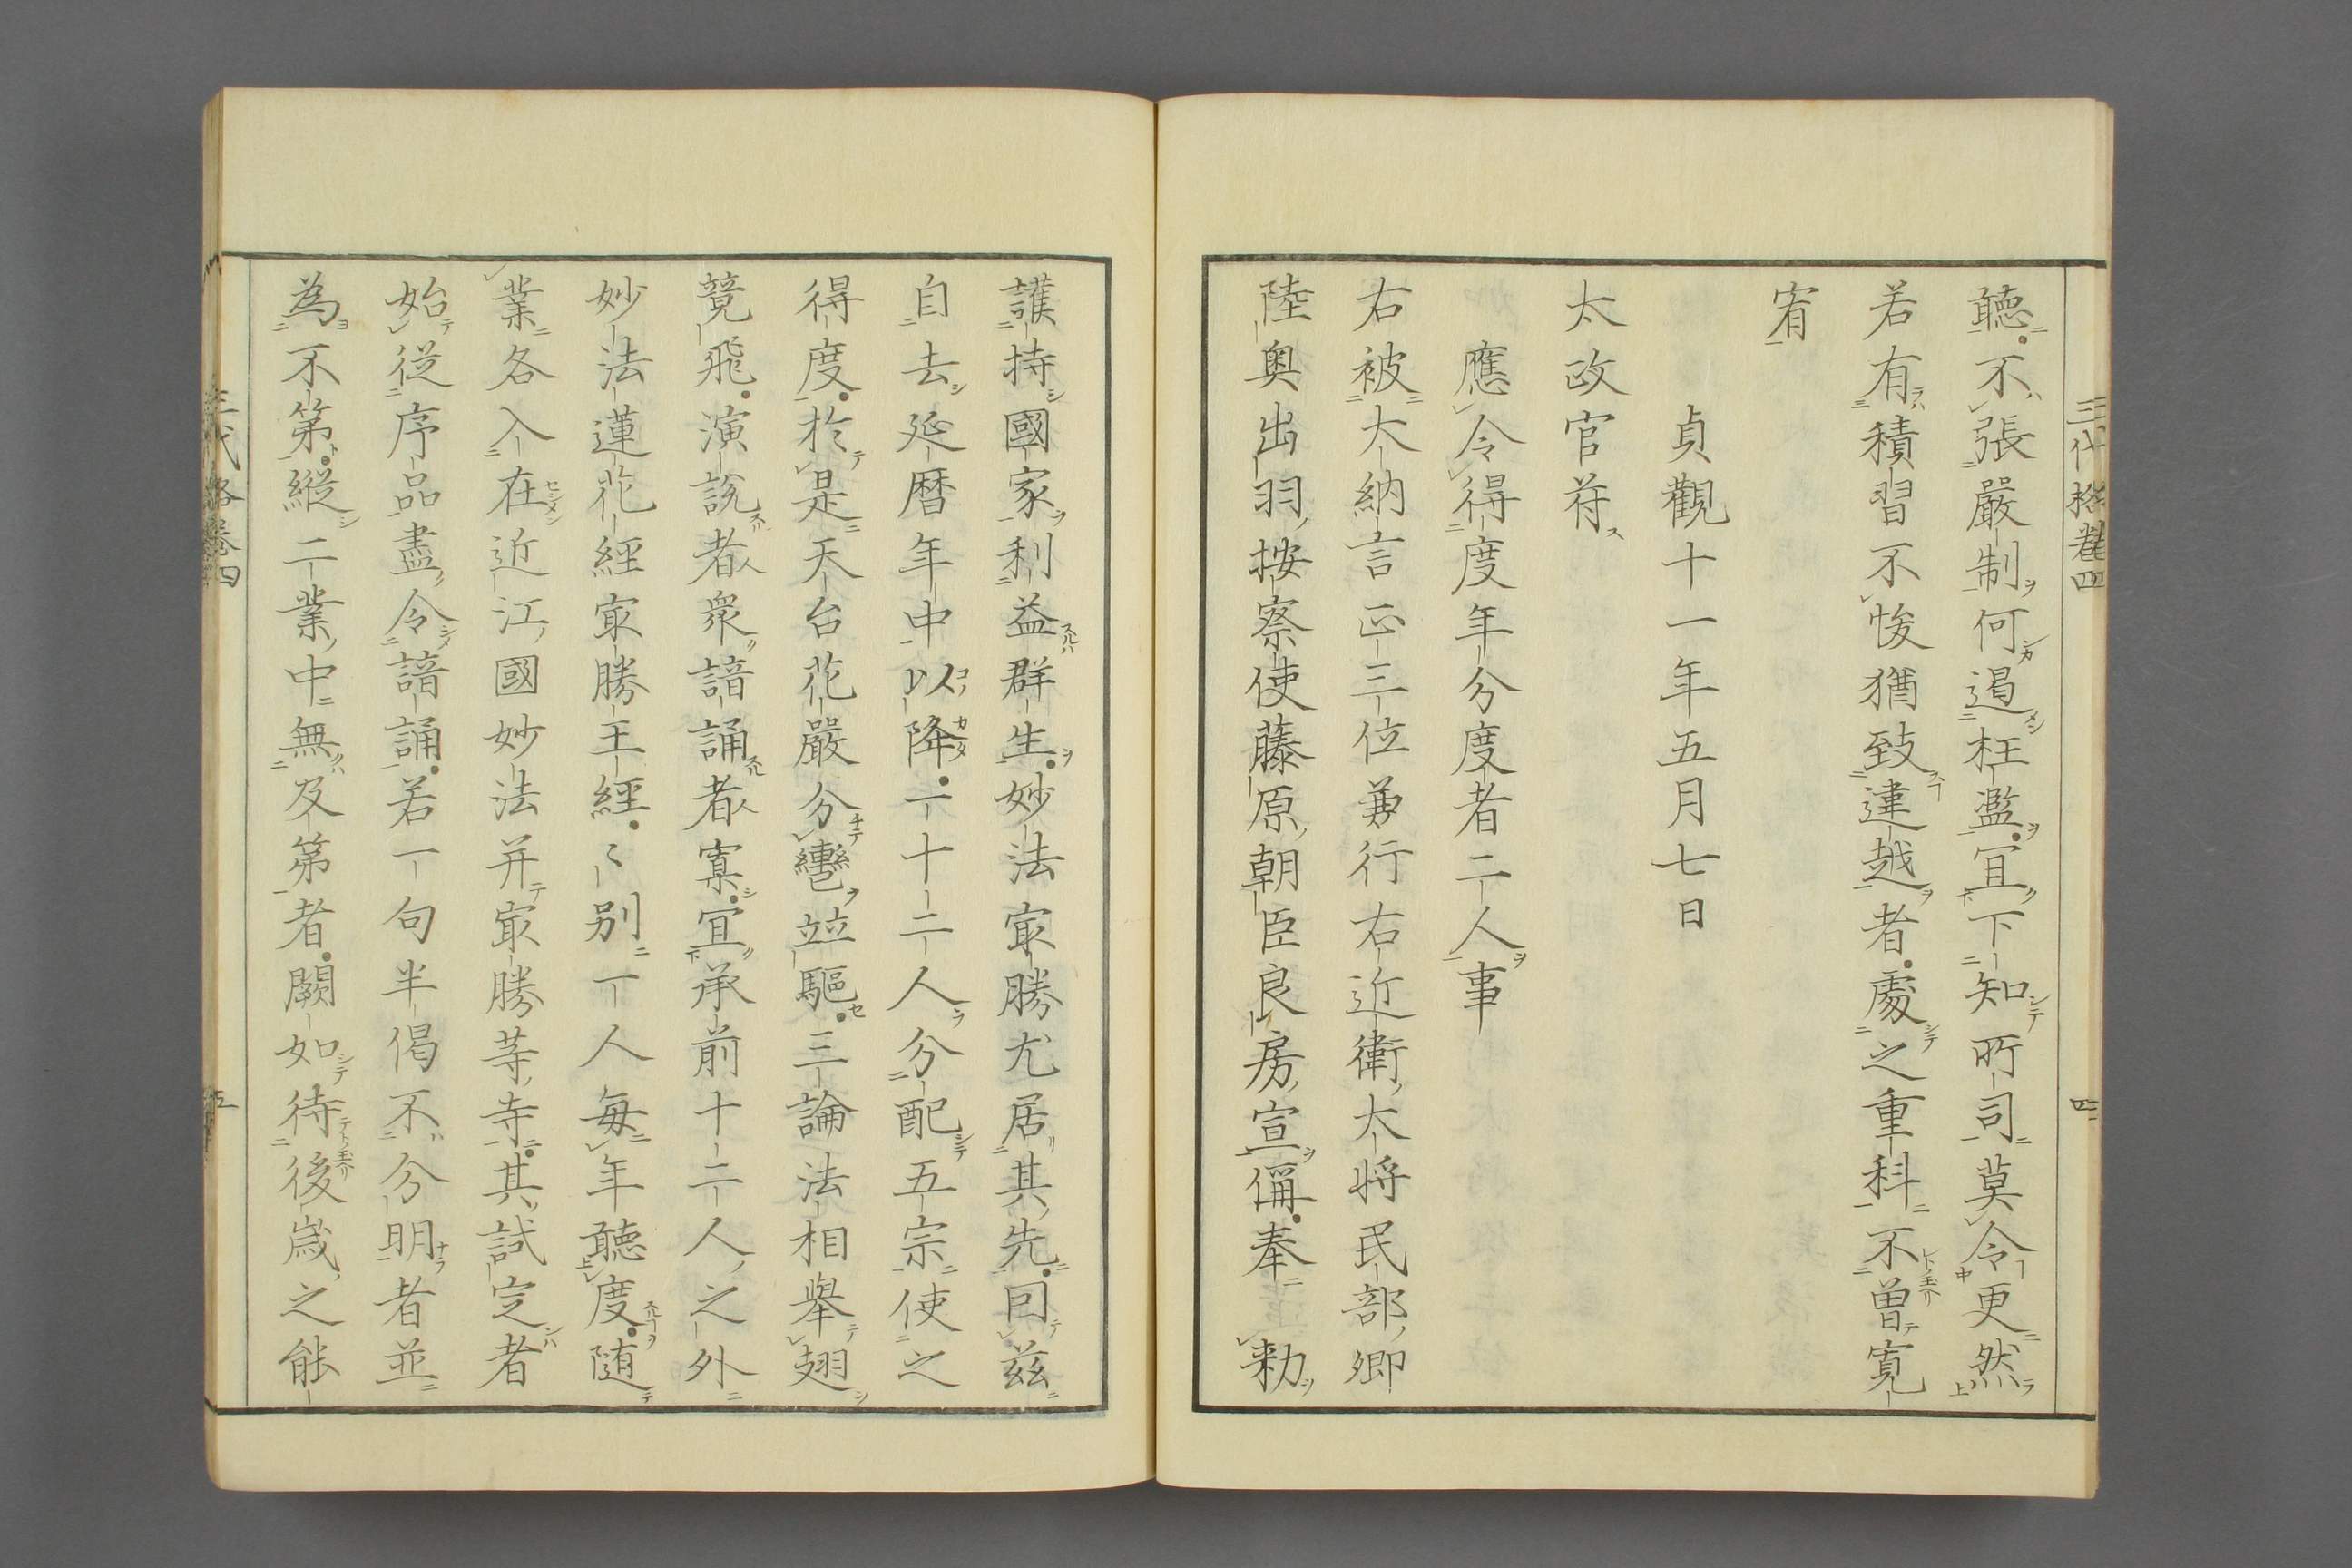 三代格卷四
四
聽不張嚴制何遏枉濫宜下知所司莫令更然
若有積習不悛猶致違越者處之重科不曽寛
宥
貞觀十一年五月七日
太政官符
應令得度年分度者二人事
右被大納言正三位兼行右近衛大将民部卿
陸奥出羽按察使藤原朝臣良房宣偁奉勅
護持國家利益群生妙法冣勝尤居其先因茲
自去延暦年中以降一十二人分配五宗使之
得度於是天台花嚴分轡並驅三論法相舉翅
競飛演說者衆諳誦者寡宜承前十二人之外
妙法蓮花經冣勝王經〻別一人毎年聽度随
業各入在近江國妙法并冣勝等寺其試定者
始從序品盡令諳誦若一句半偈不分明者並
為不第縱二業中無及第者闕如待後歳之能
三代格卷四
五